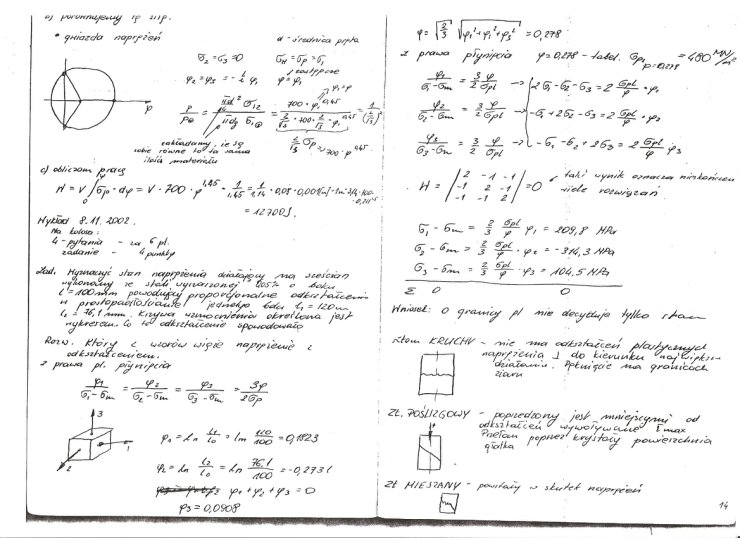 b) porównujemy
• gniazda naprężeń
d - średnica pręta
σ₂ = σ₃ = 0
σ_H = σ_p = σ₁
φ₂ = φ₃ = -½ φ₁
φ = φ₁
zakładamy, że są
sobie równe bo ta sama
ilość materiału
c) obliczam pracę
= 12700 J.
Wykład 8.11.2002.
Na koloso:
4 - pytania - za 6 pkt.
zadanie - 4 punkty
Zad. Wyznaczyć stan naprężenia działający na sześcian
wykonany ze stali wyżarzonej 0,05% o boku
l = 100 mm powodujący proporcjonalne odkształcenie
w prostopadłościanie jednego boku l₁ = 120 mm
l₂ = 76,1 mm. Krzywa umocnienia określona jest
wykresem. Co to odkształcenie spowodowało
Rozw. Który z wzorów wiąże naprężenie z
odkształceniem.
z prawa pł. płynięcia
φ₁/(σ₁-σm) = φ₂/(σ₂-σm) = φ₃/(σ₃-σm) = 3φ/2σp
3
1
2
φ₁ = ln l₁/l₀ = ln 120/100 = 0,1823
φ₂ = ln l₂/l₀ = ln 76,1/100 = -0,2731
φ₁ + φ₂ + φ₃ = 0
φ₃ = 0,0908
φ = √(2/3) √(φ₁² + φ₂² + φ₃²) = 0,278
z prawa płynięcia φ = 0,278 - tabel. σpl φ=0,278 = 480 MN/m²
φ₁/(σ₁-σm) = 3/2 φ/σpl → 2σ₁ - σ₂ - σ₃ = 2 σpl/φ · φ₁
φ₂/(σ₂-σm) = 3/2 φ/σpl → -σ₁ + 2σ₂ - σ₃ = 2 σpl/φ · φ₂
φ₃/(σ₃-σm) = 3/2 φ/σpl → -σ₁ - σ₂ + 2σ₃ = 2 σpl/φ φ₃
W = | 2 -1 -1 | taki wynik oznacza nieskończenie
| -1 2 -1 | = 0 wiele rozwiązań
| -1 -1 2 |
σ₁ - σm = 2/3 σpl/φ φ₁ = 209,8 MPa
σ₂ - σm = 2/3 σpl/φ · φ₂ = -314,3 MPa
σ₃ - σm = 2/3 σpl/φ · φ₃ = 104,5 MPa
Σ 0 0
Wniosek: o granicy pl nie decyduje tylko stan
Złom KRUCHY - nie ma odkształceń plastycznych
naprężenia ⊥ do kierunku największ.
działania. Pęknięcie na granicach
ziarn
ZŁ. POŚLIZGOWY - poprzedzony jest mniejszymi od
odkształceń wywoływane τ max
Przełom poprzez kryształy powierzchnia
gładka
ZŁ MIESZANY - powstały w skutek naprężeń
14